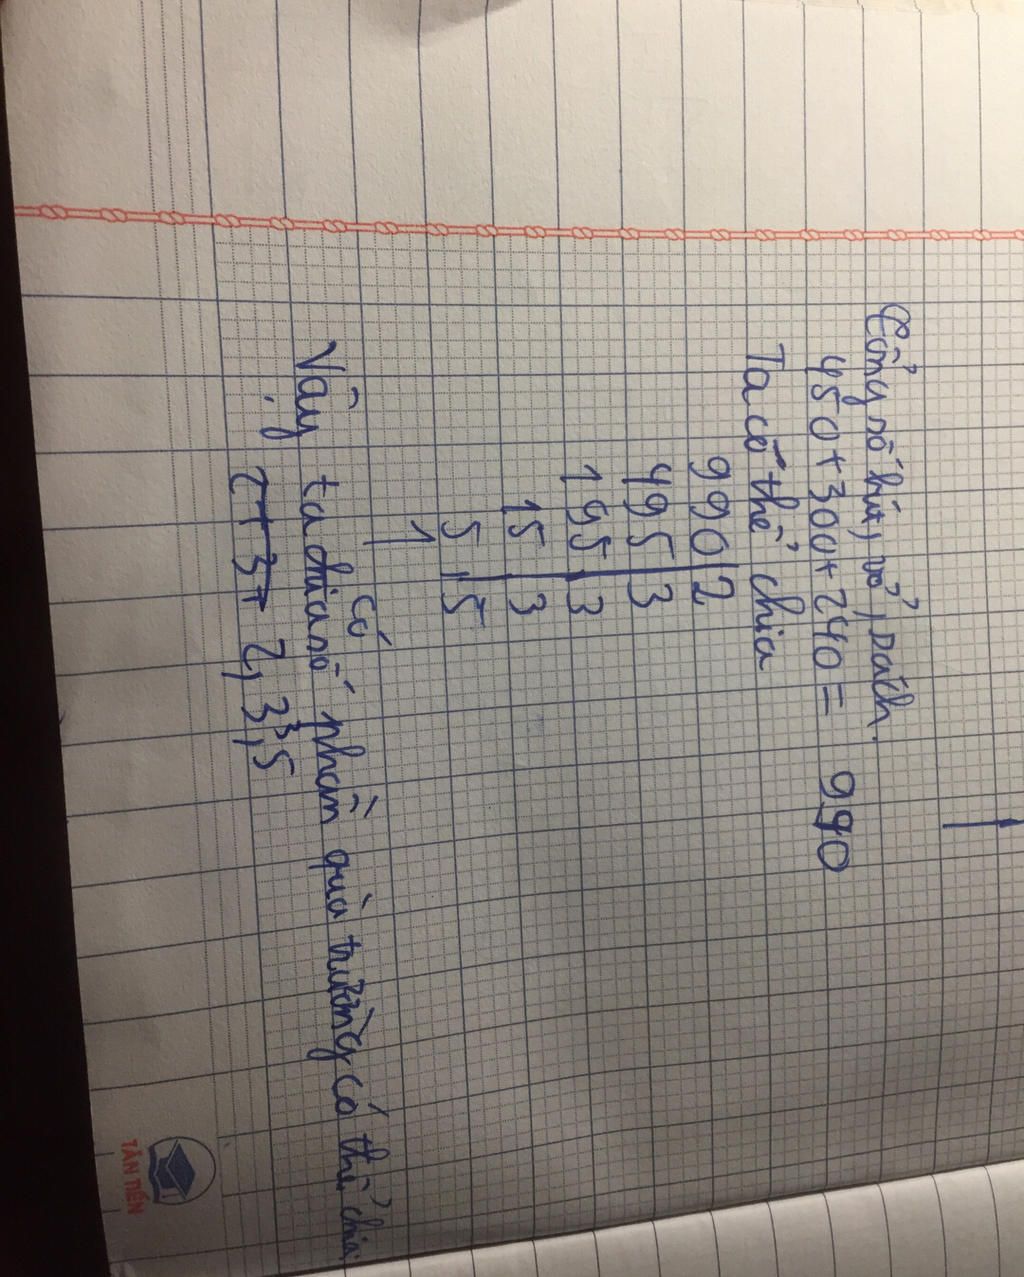 Tổng số bút, vở, sách.
450+300+240= 990
Ta có thể chia
990 2
495 3
195 3
15 3
5 5
1
Vậy ta có chia số phần quà trường có thể chia
2, 3³, 5
TÂN TIẾN